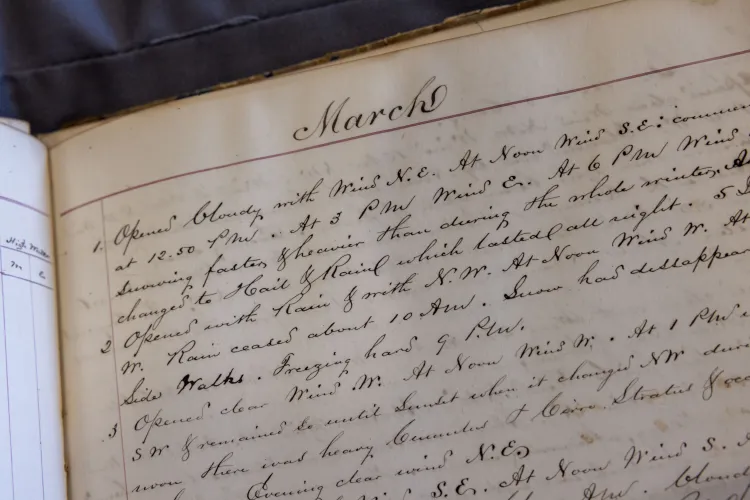 March
1. Opened Cloudy with Wind N.E. At Noon Wind S.E: commen
at 12.50 P.M. At 3 P M Wind E. At 6 P M Wind
Snowing faster & heavier than during the whole winter.
changed to Hail & Rain which lasted all night. S
2 Opened with Rain & with N.W. At Noon Wind W. At
W. Rain ceased about 10 A.M. Snow had dissappear
Side Walks. Freezing hard 9 P.M.
3 Opened clear Wind W. At Noon Wind W. At 1 P M
S W & remained so until Sunset when it changed N W duri
noon there was heavy Cumulus & Cirro Stratus &
Evening clear wind N.E.
S.E. At Noon Wind S.
A M. Cloudy
High Water
m e